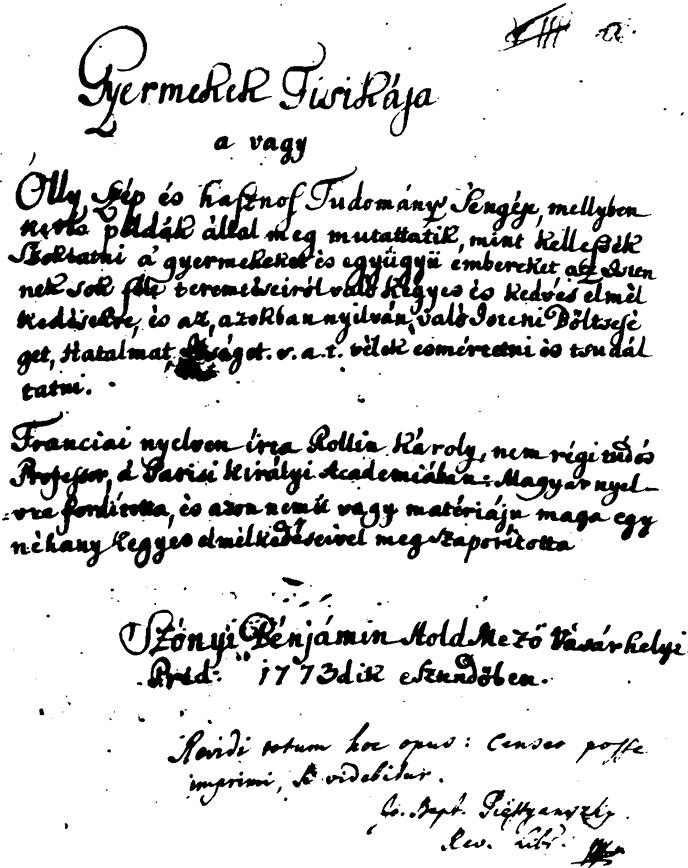 Gyermekek Fisikája
a vagy
Olly szép és hasznos Tudomány 'Sengéje, mellyben
neves példák által meg mutattatik, mint kellessék
Szoktatni a' gyermekeket és együgyü embereket az Isten
nek sok féle teremtéseiről való kegyes és kedves elmél
kedésekre, és az, azokban nyilván való Isteni Böltsesé
get, Hatalmat, Jóságot. s. a. t. vélek esmértetni és tsudál
tatni.
Franciai nyelven írta Rollin Károly, nem régi tudós
Professor, a' Parisi Királyi Academiában: Magyar nyel-
vre fordította, és azon nemü vagy matériáju maga egy
néhány kegyes elmélkedéseivel meg szaporította
Szőnyi Bénjámin Hold Mező Vásárhelyi
Préd: 1773dik esztendőben.
Revidi totum hoc opus: Censeo posse
imprimi, si videbitur.
Jo. Bapt.
Rev. Libr.